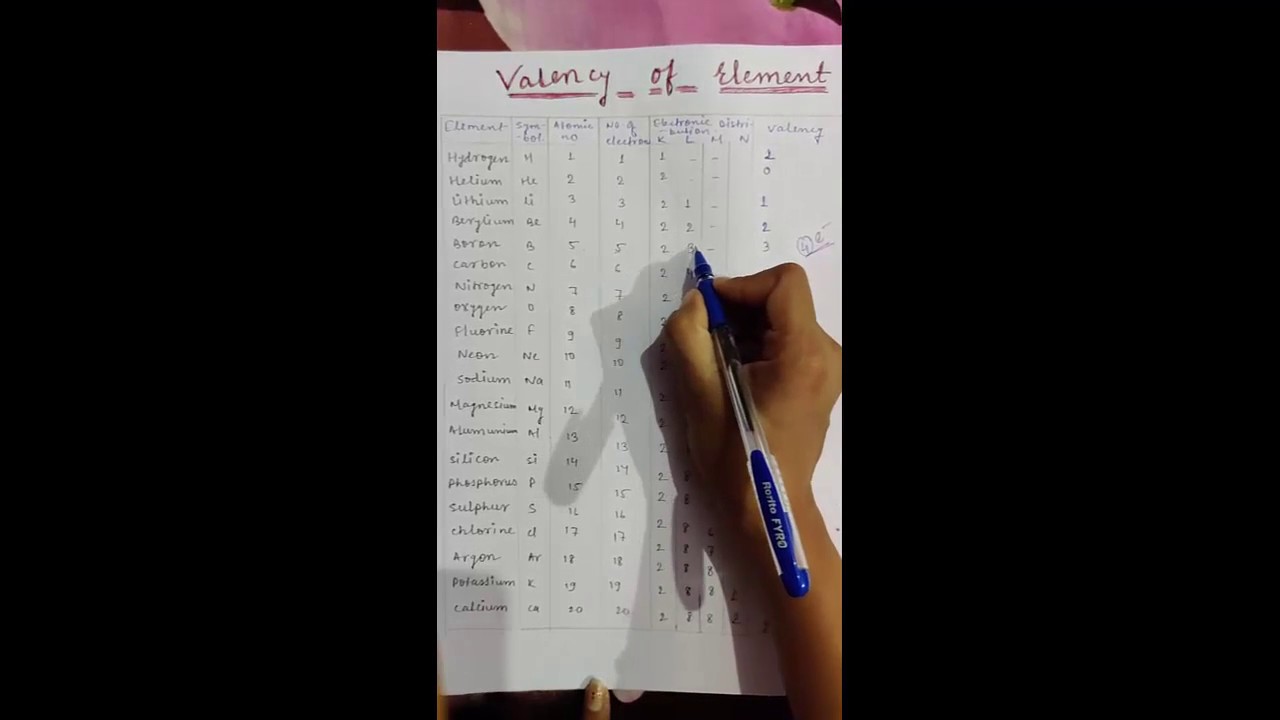 Valency of Element
Element Sym- Atomic No of Electronic Distri- Valency
-bol no electron -bution K L M N
Hydrogen H 1 1 1 - - 2
Helium He 2 2 2 - - 0
Lithium Li 3 3 2 1 - 1
Beryllium Be 4 4 2 2 - 2
Boron B 5 5 2 3 - 3 4 e-
Carbon C 6 6 2
Nitrogen N 7 7 2
Oxygen O 8 8 2
Fluorine F 9 9 2
Neon Ne 10 10 2
Sodium Na 11 11 2
Magnesium Mg 12 12 2
Alumunium Al 13 13 2
Silicon Si 14 14 2
Phosphorus P 15 15 2 8
Sulphur S 16 16 2 8 6
Chlorine Cl 17 17 2 8 7
Argon Ar 18 18 2 8 8
Potassium K 19 19 2 8 8
Calcium Ca 20 20 2 8 8 2
Rorito FYRO